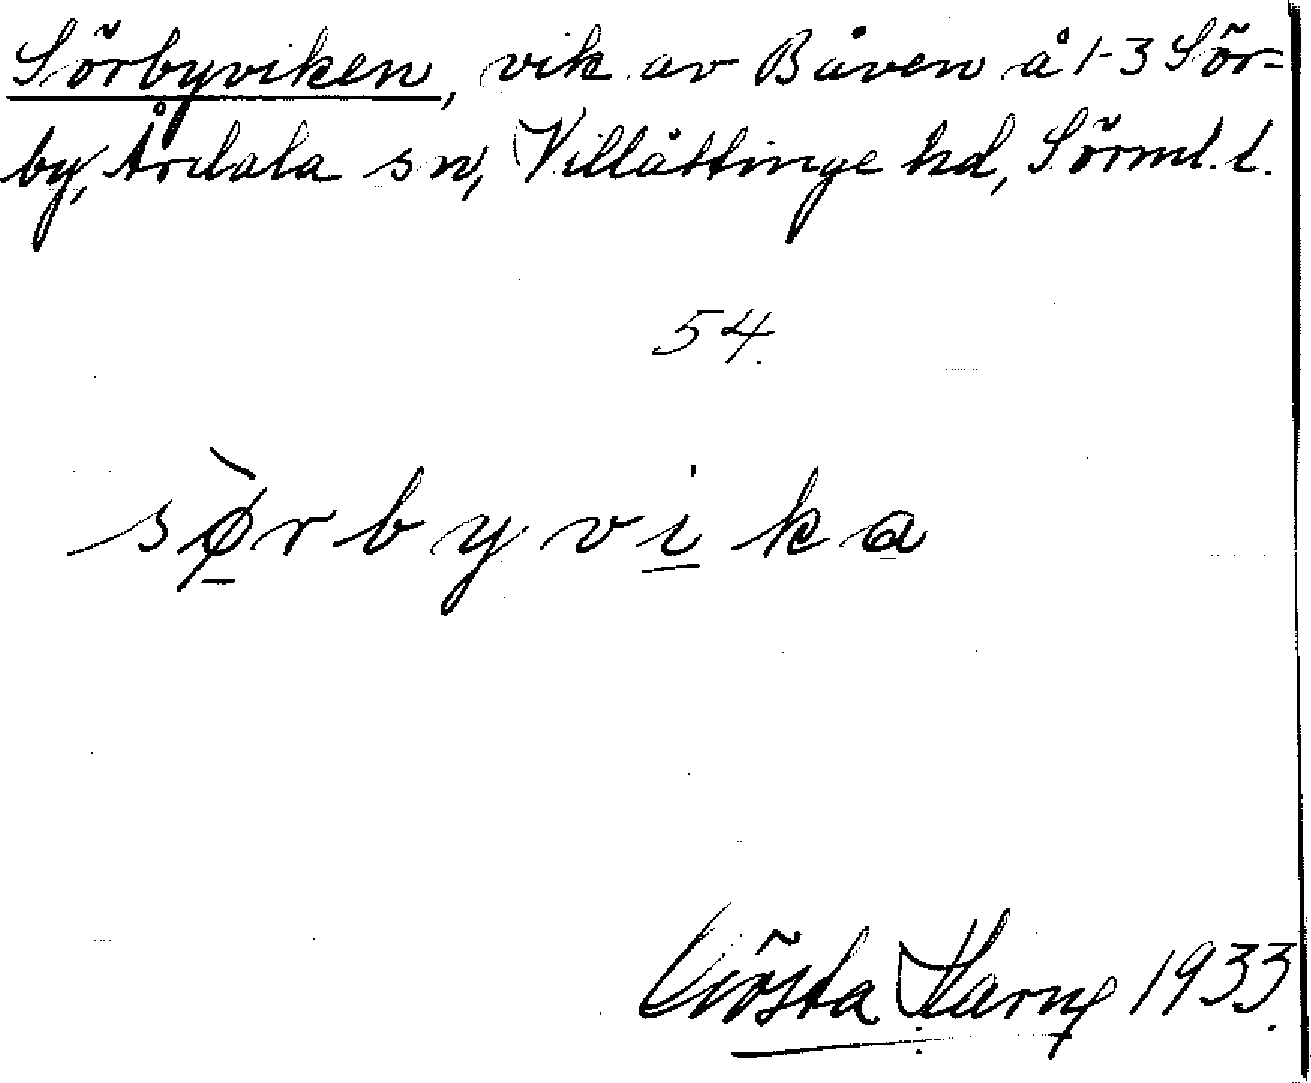 Sörbyviken, vik av Båven å 1-3 Sör-
by, Årdala sn, Villåttinge hd, Sörml. l.
54.
sø̀rbyvika
Gösta 1933.